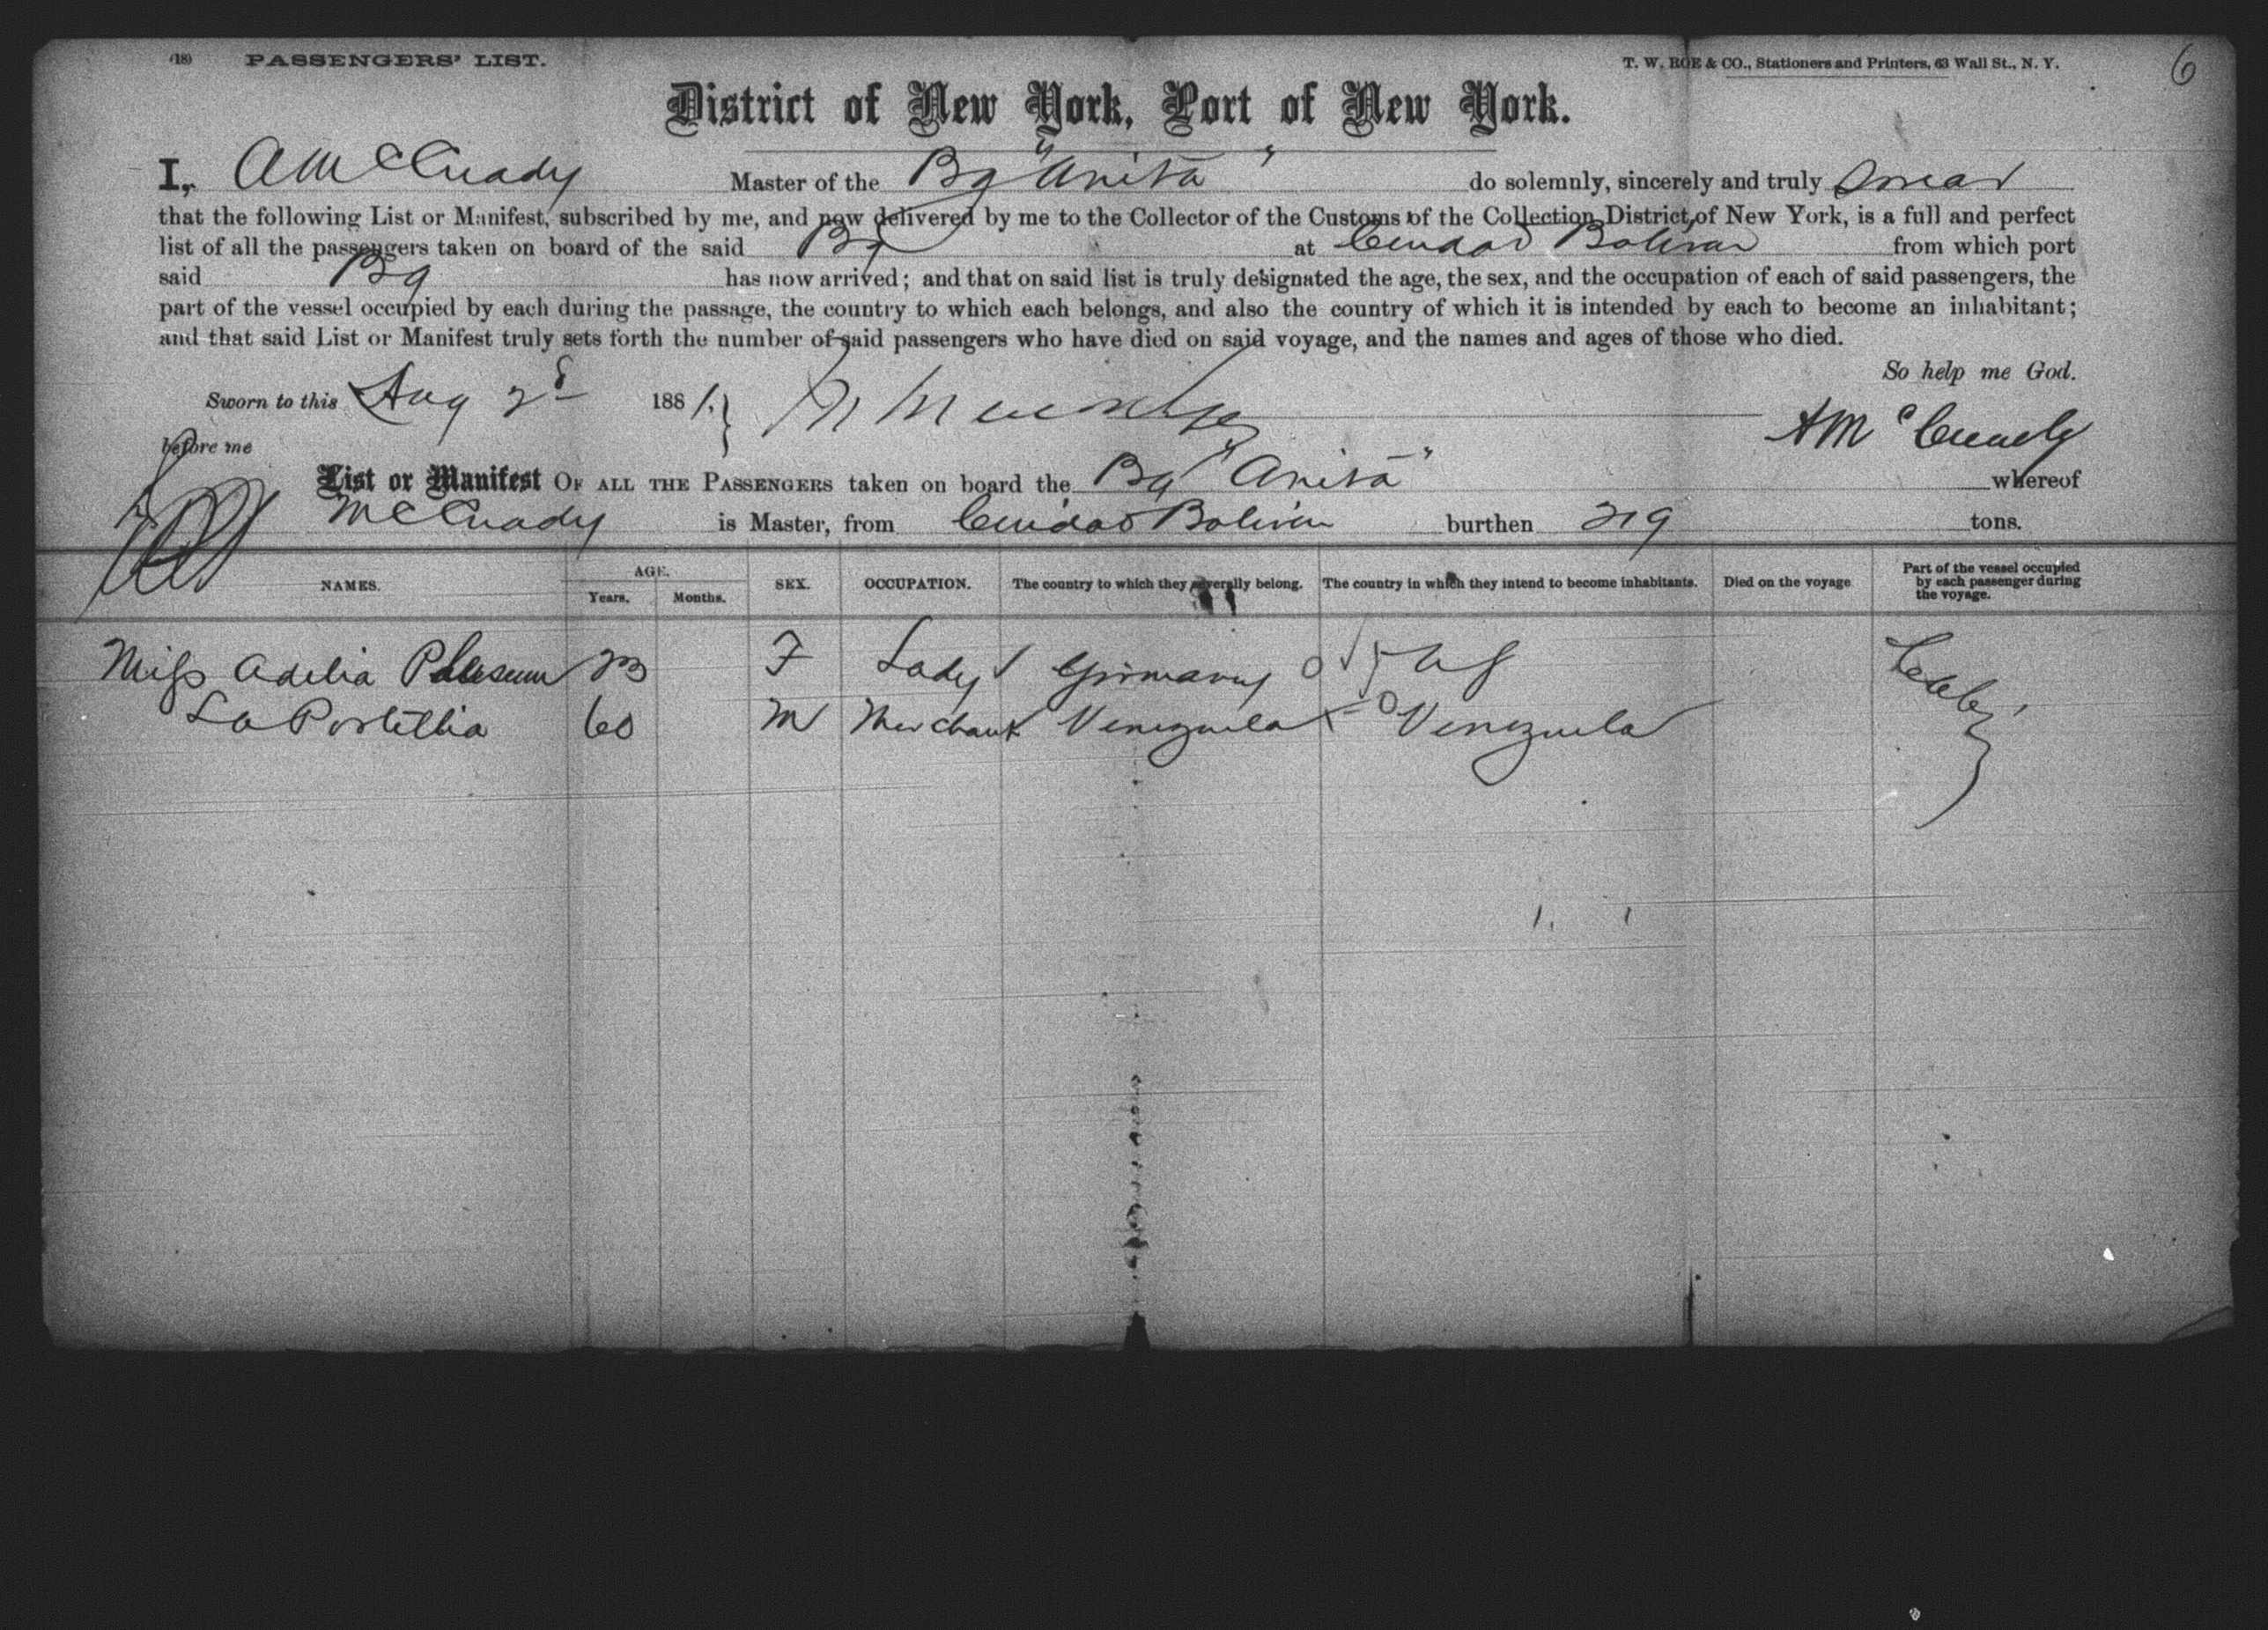 (18) PASSENGERS' LIST. T. W. ROE & CO., Stationers and Printers, 63 Wall St., N. Y. 6
District of New York, Port of New York.
I, A McCready Master of the Bg "Anita" do solemnly, sincerely and truly swear
that the following List or Manifest, subscribed by me, and now delivered by me to the Collector of the Customs of the Collection District of New York, is a full and perfect
list of all the passengers taken on board of the said Bg at Ciudad Bolivar from which port
said Bg has now arrived; and that on said list is truly designated the age, the sex, and the occupation of each of said passengers, the
part of the vessel occupied by each during the passage, the country to which each belongs, and also the country of which it is intended by each to become an inhabitant;
and that said List or Manifest truly sets forth the number of said passengers who have died on said voyage, and the names and ages of those who died.
So help me God.
Sworn to this Aug 2d 1881.
before me
List or Manifest OF ALL THE PASSENGERS taken on board the Bg "Anita" whereof
McCready is Master, from Ciudad Bolivar burthen 219 tons.
NAMES. AGE. Years. Months. SEX. OCCUPATION. The country to which they severally belong. The country in which they intend to become inhabitants. Died on the voyage Part of the vessel occupied by each passenger during the voyage.
Miss Adelia 23 F Lady Germany
La Portillia 60 M Merchant Venezuela Venezuela